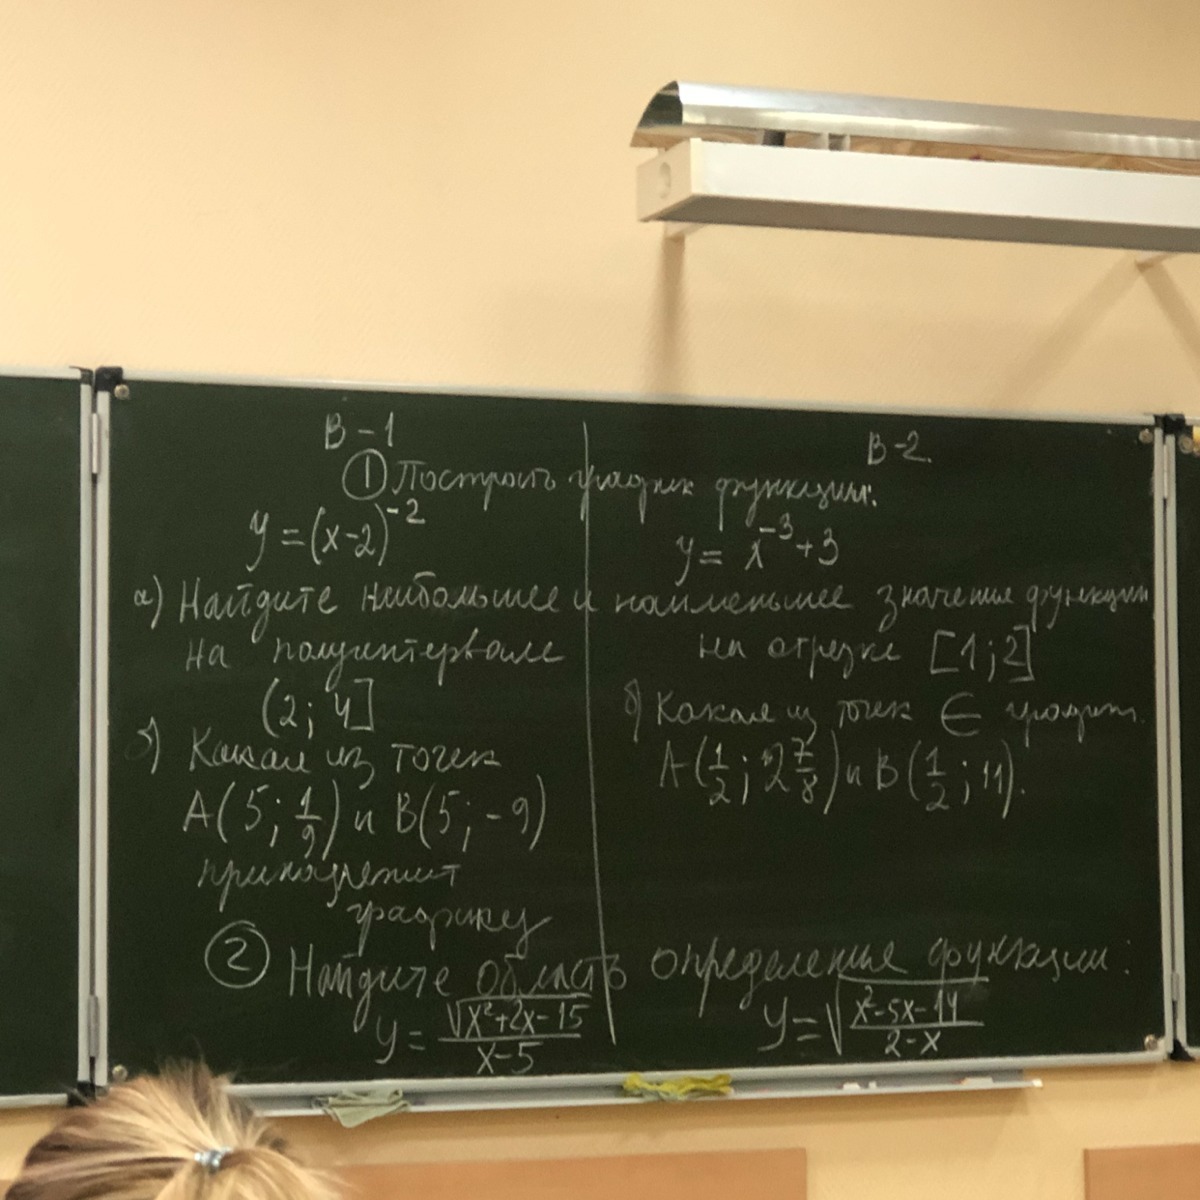 В-1
В-2.
① Построить график функции:
y = (x-2)^-2
y = x^-3 + 3
а) Найдите наибольшее и наименьшее значения функции
на полуинтервале
(2; 4]
на отрезке [1; 2]
б) Какая из точек
A(5; 1/9) и B(5; -9)
принадлежит
графику
б) Какая из точек ∈ график.
A(1/2; 2 7/8) и B(1/2; 11).
② Найдите область определения функции:
y = √(x²+2x-15) / (x-5)
y = √((x²-5x-14) / (2-x))